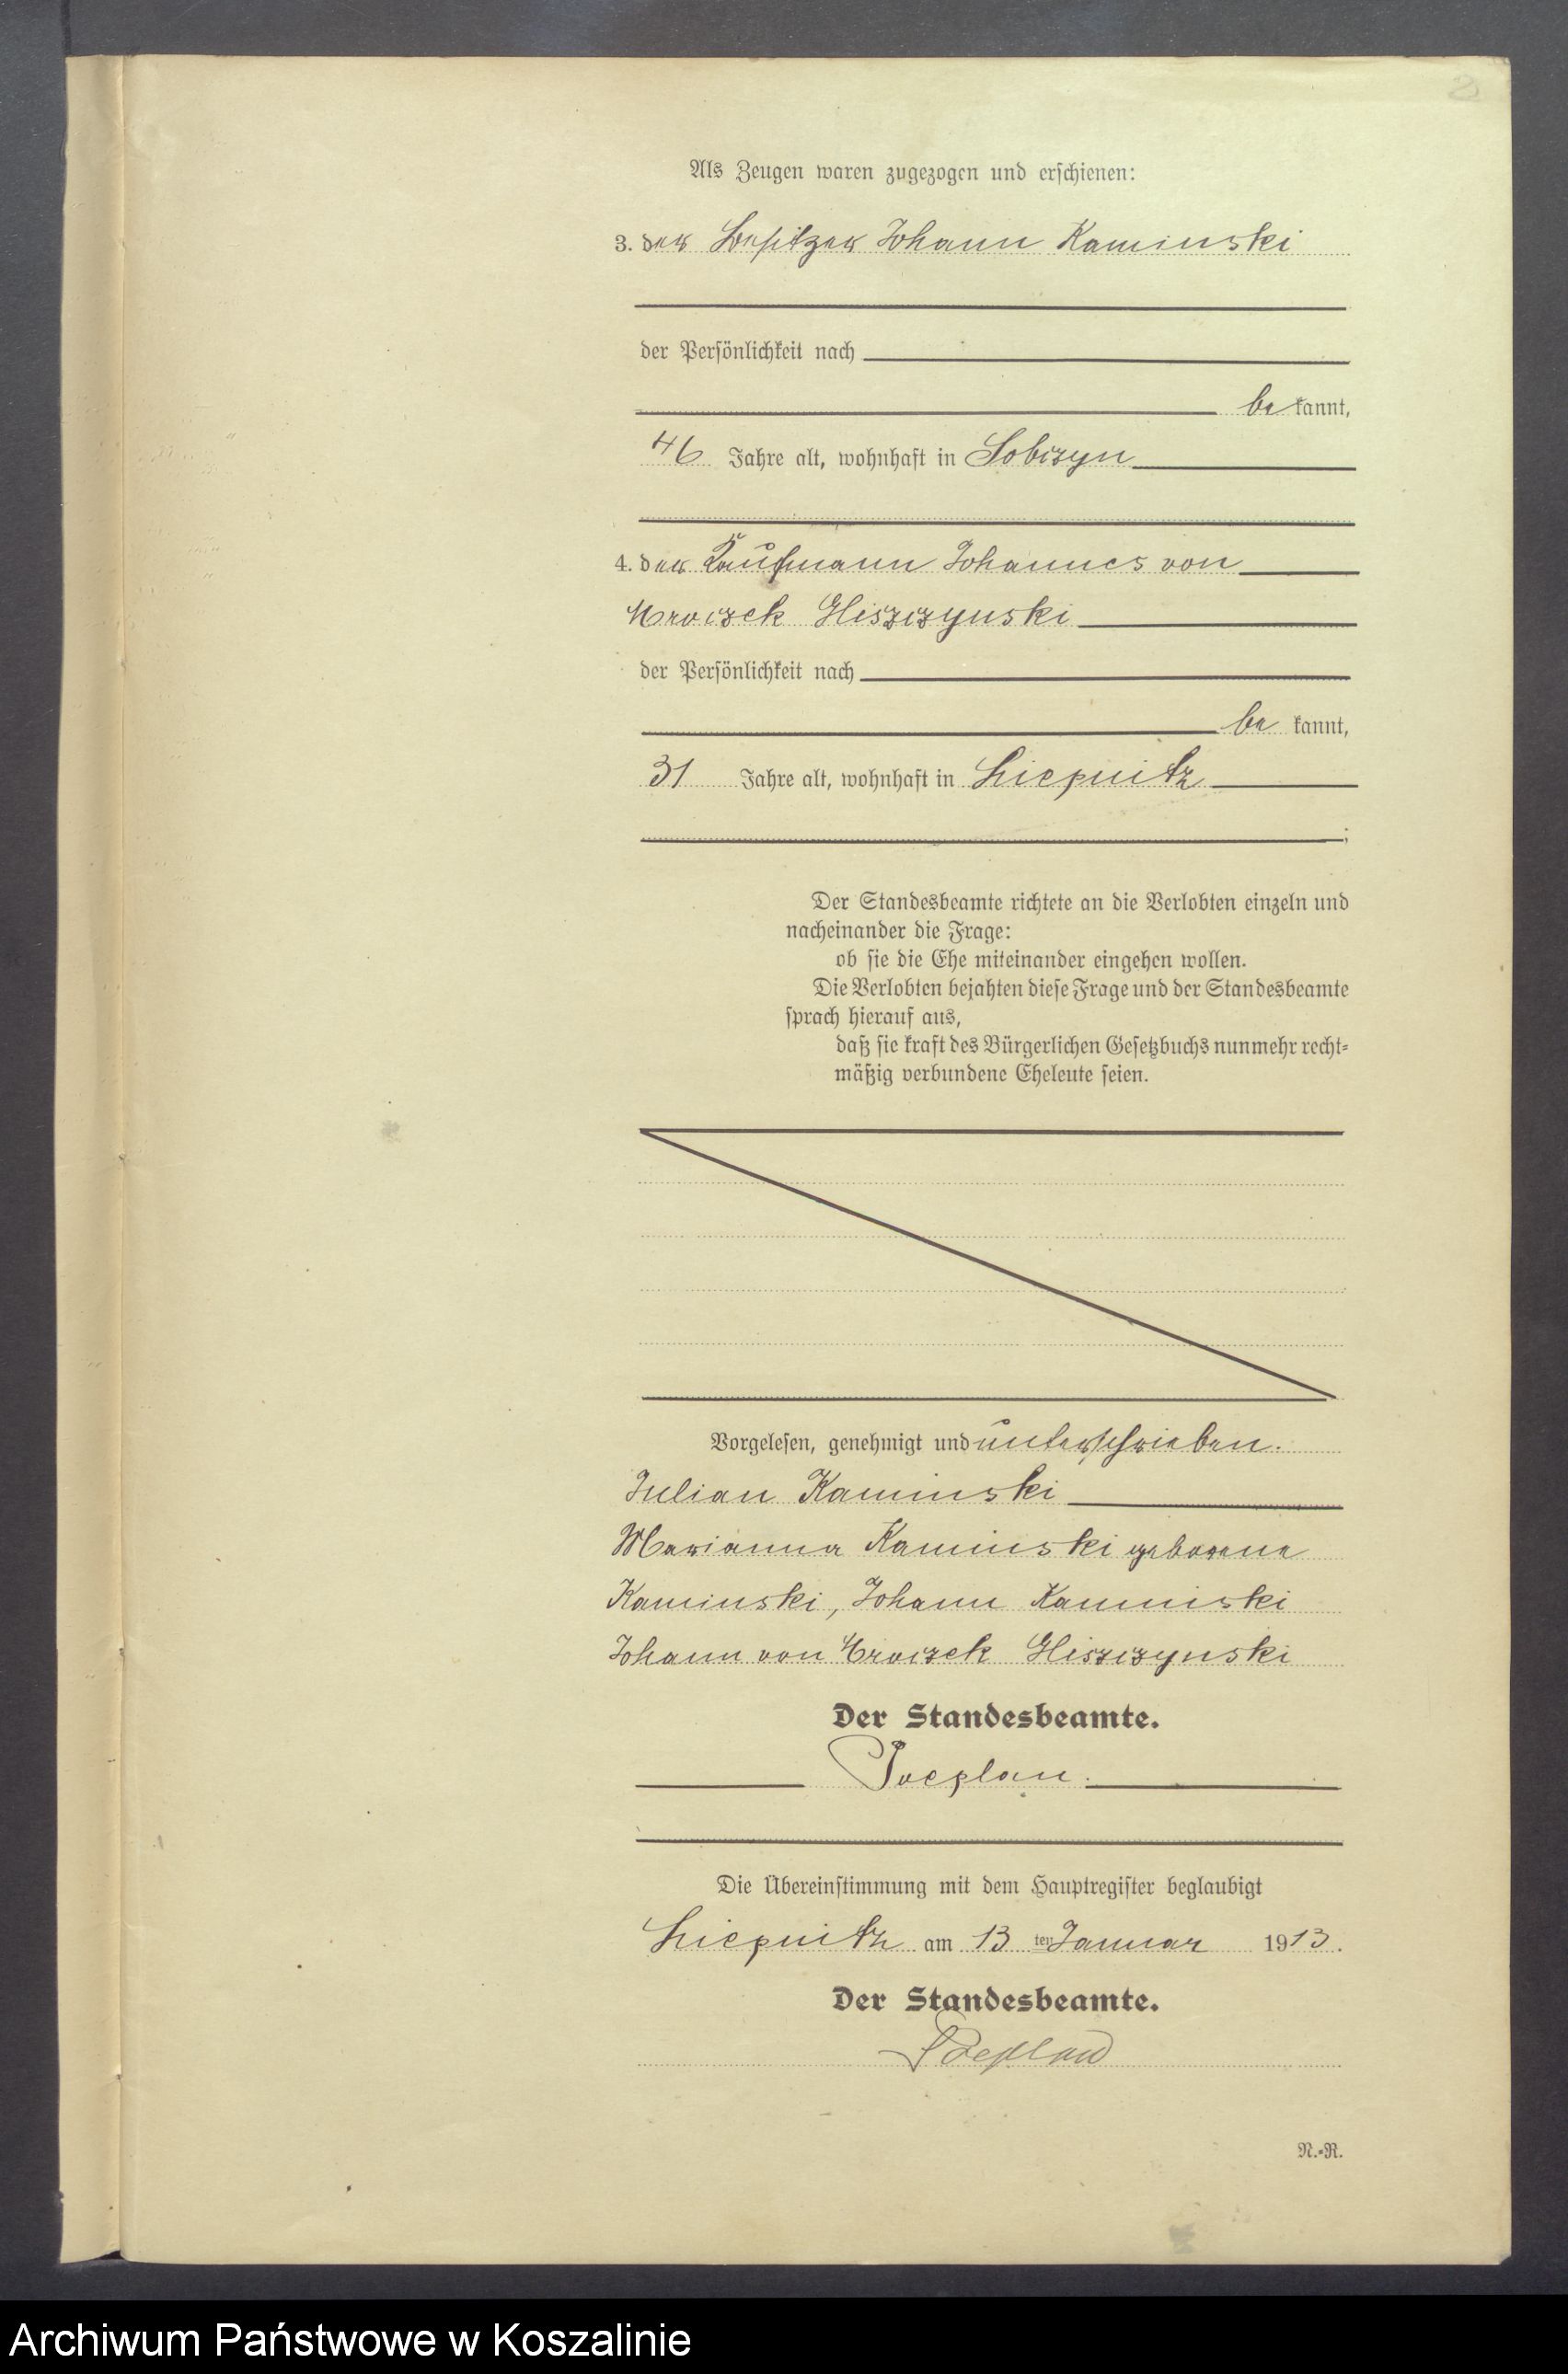 Als Zeugen waren zugezogen und erschienen:
3. der Besitzer Johann Kaminski
der Persönlichkeit nach
be kannt,
46 Jahre alt, wohnhaft in Sobczyn
4. der Kaufmann Johannes von
Mroczek Gliszczynski
der Persönlichkeit nach
be kannt,
31 Jahre alt, wohnhaft in Liepnitz
;
Der Standesbeamte richtete an die Verlobten einzeln und
nacheinander die Frage:
ob sie die Ehe miteinander eingehen wollen.
Die Verlobten bejahten diese Frage und der Standesbeamte
sprach hierauf aus,
daß sie kraft des Bürgerlichen Gesetzbuchs nunmehr recht-
mäßig verbundene Eheleute seien.
Vorgelesen, genehmigt und unterschrieben.
Julian Kaminski
Marianna Kaminski geborene
Kaminski, Johann Kaminski
Johann von Mroczek Gliszczynski
Der Standesbeamte.
Poeplau.
Die Übereinstimmung mit dem Hauptregister beglaubigt
Liepnitz am 13 ten Januar 1913.
Der Standesbeamte.
Poeplau
N.-R.
Archiwum Państwowe w Koszalinie